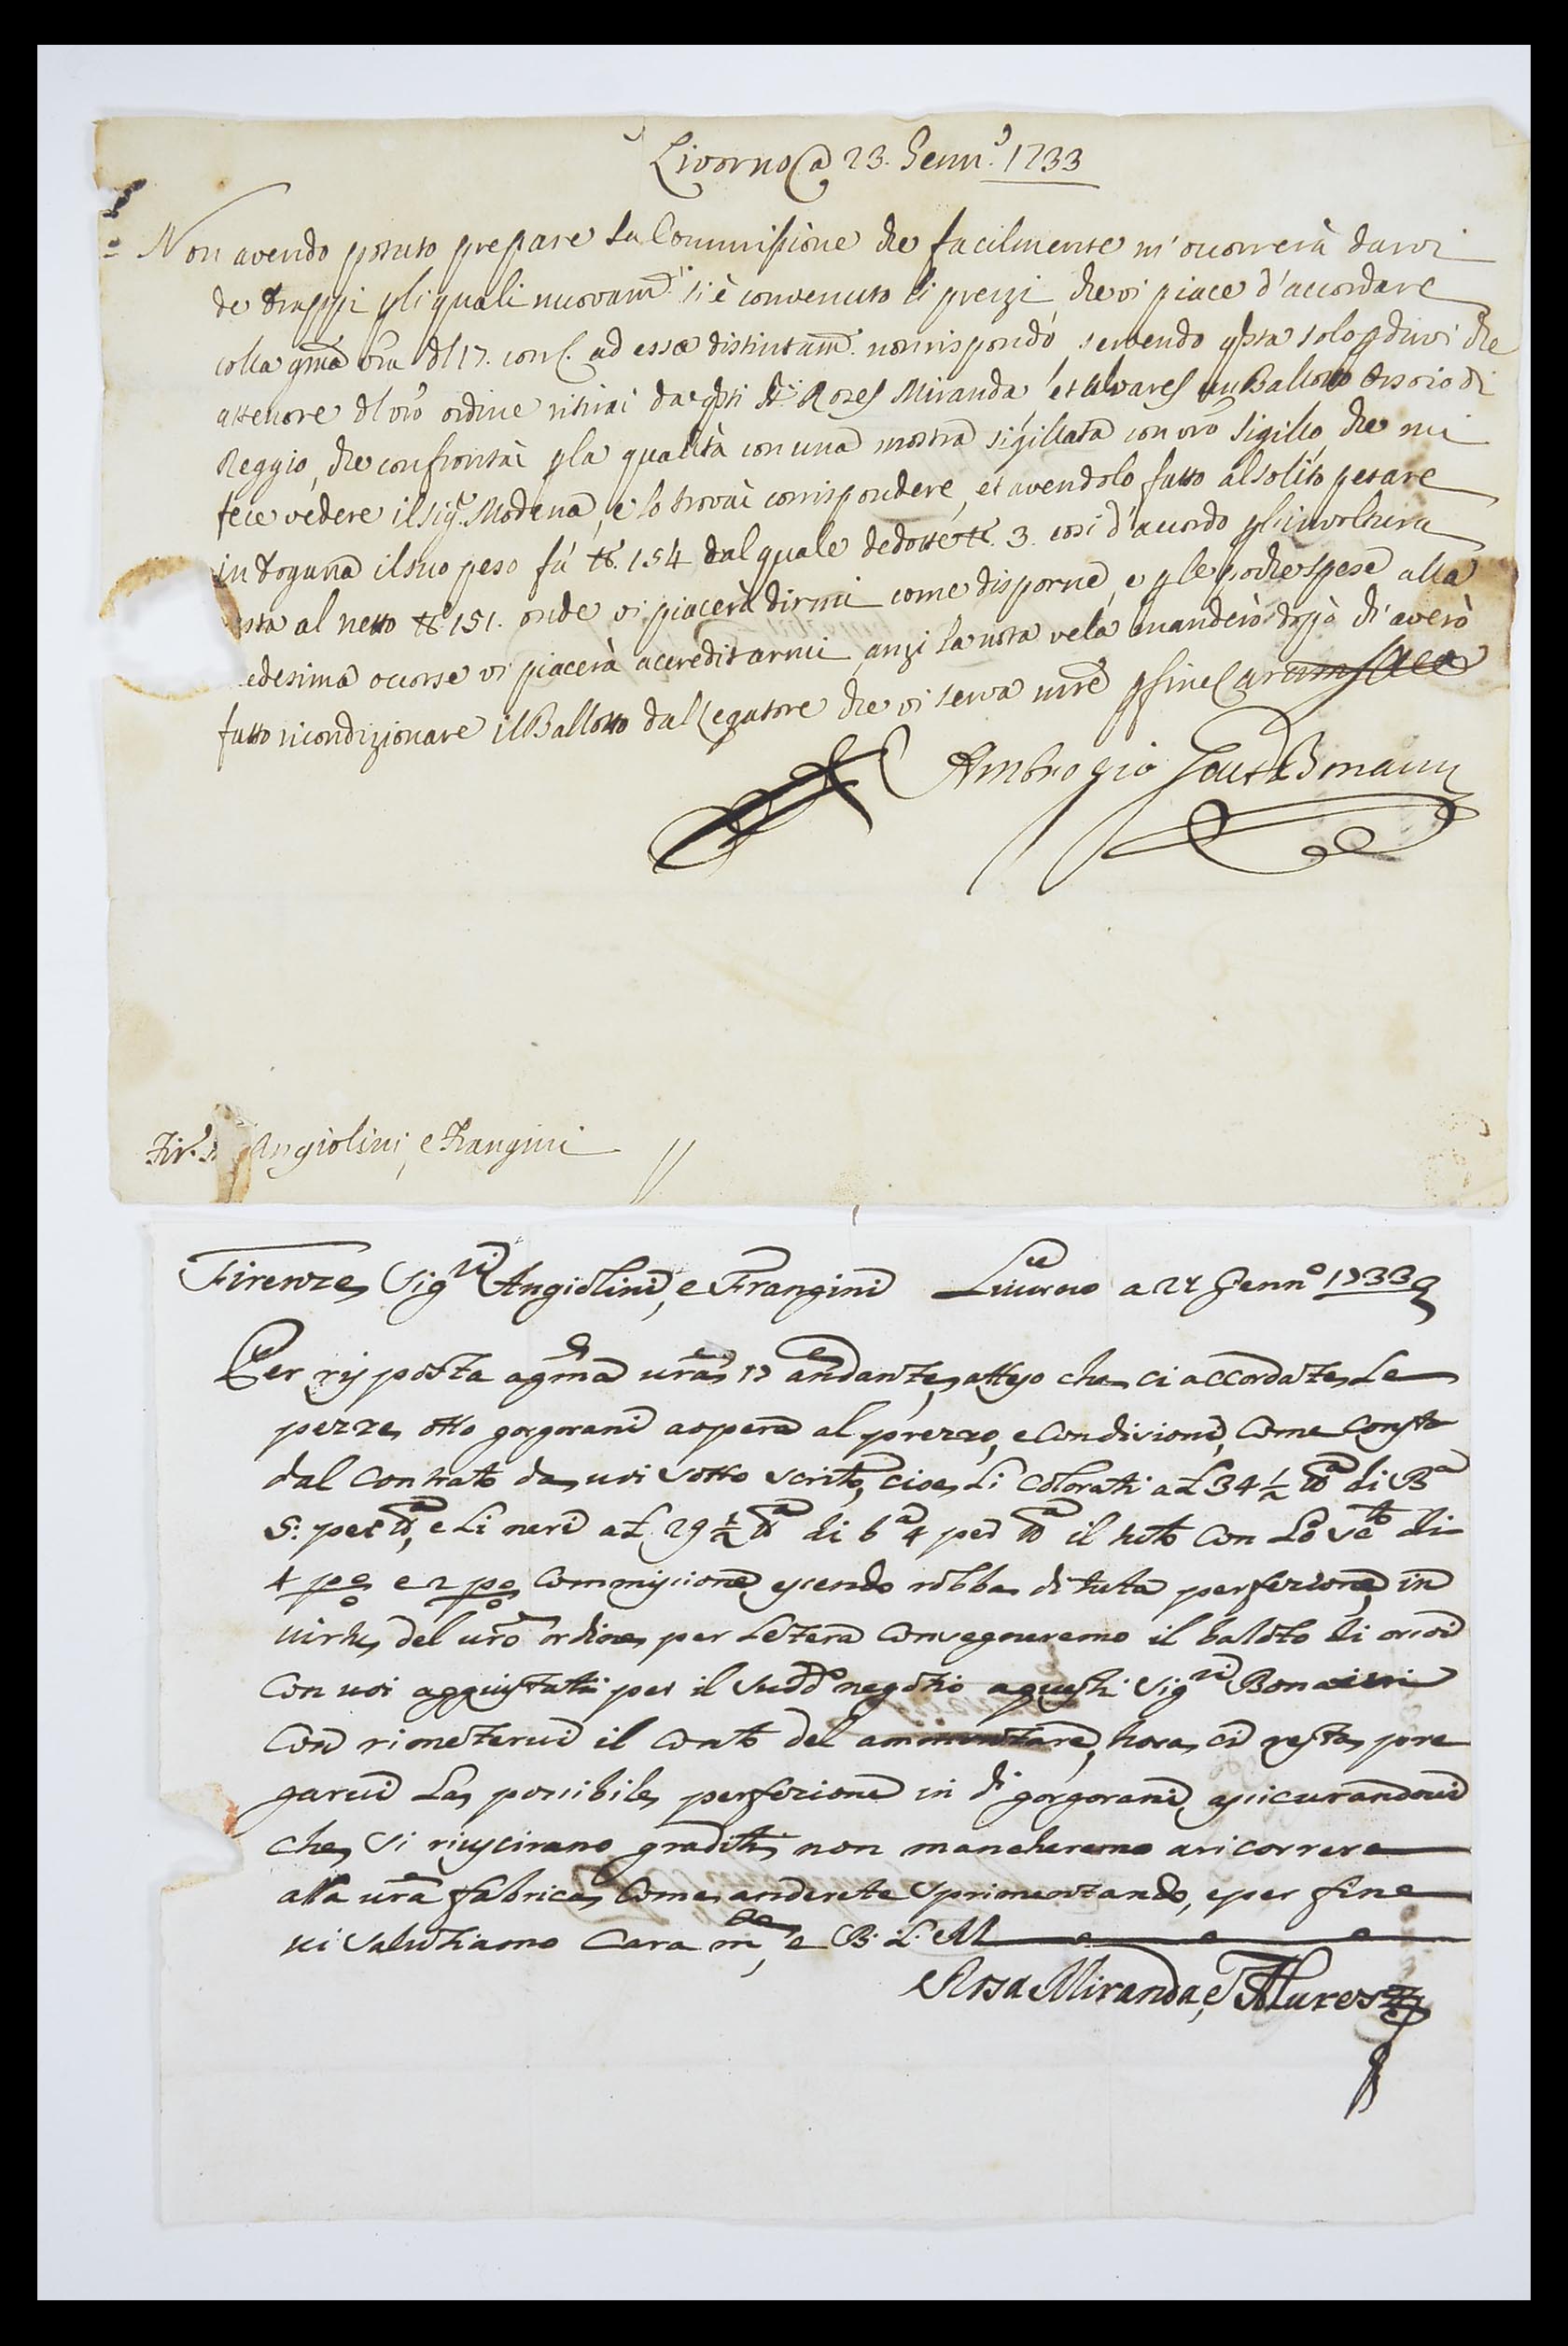 Livorno a 23. Genn.o 1733
Non avendo potuto prestare la Commissione che facilmente m'ocorrerà darvi
de drappi p li quali nuovam.te si è convenuto li prezzi che vi piace d'accordare
colla gma vra dl 17. corr. ad essa distintam.te non rispondo, servendo qsta solo p dirvi che
attenore dl vro ordine ritirai da qsti SS.ri Roses Miranda et Alvares un Ballotto Orsoio di
Reggio, che confrontai p la qualità con una mostra sigillata con vro sigillo che mi
fece vedere il Sig.r Modena, e lo trovai corrispondere, et avendolo fatto al solito pesare
in dogana il suo peso fù lb. 154 dal quale dedotte lb. 3. così d'accordo p l'involtura
sta al netto lb 151. onde vi piacerà dirmi come disporne, e p le poche spese alla
edesima occorse vi piacerà accreditarmi, anzi la nota ve la manderò doppò di averò
fatto ricondizionare il Ballotto dal Legatore che vi serva mre p fine
Ambrogio
Fir.e Angiolini, e Frangini
Firenze Sig.ri Angiolini, e Frangini Livorno a 24 Genn.o 1733
Per rispposta a gma vra 17 andante, atteso che ci accordate Le
pezze otto gorgorani a opera al prezzo, e Condizioni, Come Consta
dal Contrato da voi sotto scrito, cioe Li Colorati a £ 34 ½ lb.a di B.a
5: per lb.a, e Li neri a £ 29 ½ lb.a di b.a 4 per lb.a il tuto Con Lo sc.to di
4 p% e 2 p% Commissione, essendo robba di tuta perfezione, in
virtu del vro ordine per Letera Consegnaremo il baloto di orsoi
Con voi aggiustati per il sudd.o negotio a questi Sig.ri Bonaini
Con rimetervi il Conto del ammontare, hora ci resta pre
garvi La possibile perfezione in d.i gorgorani, assicurandovi
che, si riuscirano graditi, non mancheremo a ricorrere
alla vra fabrica Come anderete sprimentando, e per fine
vi salutiamo Cara m.te, e B. L. M
Rosa Miranda, e Alvares